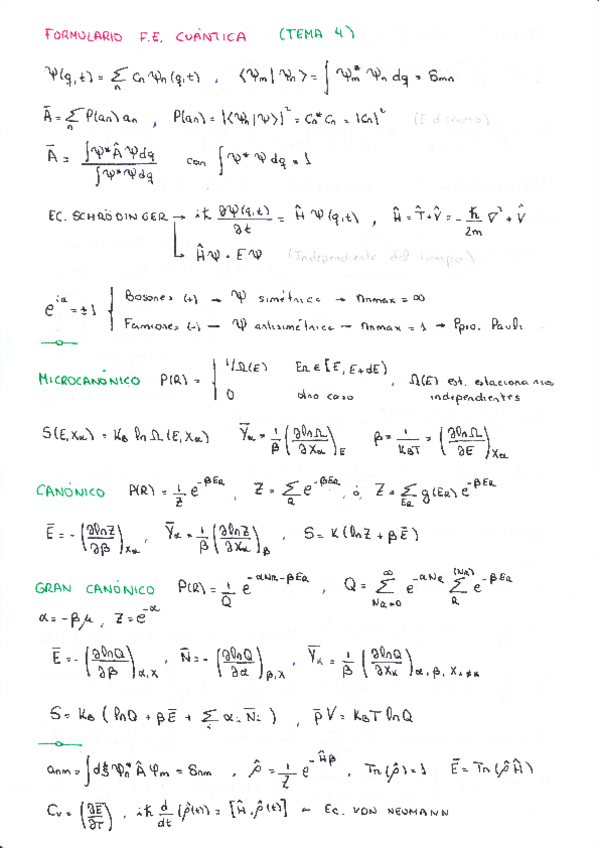 FORMULARIO F.E. CUÁNTICA (TEMA 4)
Ψ(q,t) = Σₙ Cₙ Ψₙ(q,t) , ⟨Ψₘ|Ψₙ⟩ = ∫ Ψₘ* Ψₙ dq = δₘₙ
Ā = Σₙ P(aₙ) aₙ , P(aₙ) = |⟨Ψₙ|Ψ⟩|² = Cₙ* Cₙ = |Cₙ|² (E. discreto)
Ā = ∫Ψ*ÂΨdq / ∫Ψ*Ψdq con ∫Ψ*Ψdq = 1
EC. SCHRÖDINGER → iħ ∂Ψ(q,t)/∂t = Ĥ Ψ(q,t) , Ĥ = T̂ + V̂ = - ħ/2m ∇² + V̂
↳ ĤΨ = EΨ (Independiente del tiempo)
e^{iα} = ±1 { Bosones (+) → Ψ simétrica → nₙmax = ∞
Fermiones (-) → Ψ antisimétrica → nₙmax = 1 → Ppio. Pauli
MICROCANÓNICO P(R) = { 1/Ω(E) E_R ∈ [E, E+dE) , Ω(E) est. estacionarios
0 otro caso independientes
S(E,Xα) = K_B ln Ω(E,Xα) Ȳα = 1/β (∂lnΩ/∂Xα)_E β = 1/K_BT = (∂lnΩ/∂E)_Xα
CANÓNICO P(R) = 1/Z e^{-βE_R} , Z = Σ_R e^{-βE_R} , ó, Z = Σ_{E_R} g(E_R) e^{-βE_R}
Ē = - (∂lnZ/∂β)_Xα , Ȳα = 1/β (∂lnZ/∂Xα)_β , S = K (lnZ + βĒ)
GRAN CANÓNICO P(R) = 1/Q e^{-αN_R-βE_R} , Q = Σ_{N_R=0}^∞ e^{-αN_R} Σ_R^{(N_R)} e^{-βE_R}
α = -βμ , Z = e^{-α}
Ē = - (∂lnQ/∂β)_{α,X} , N̄ = - (∂lnQ/∂α)_{β,X} , Ȳα = 1/β (∂lnQ/∂Xα)_{α,β,X≠α}
S = K_B (lnQ + βĒ + Σᵢ αᵢN̄ᵢ) , p̄V = K_BT lnQ
aₙₘ = ∫dξ Ψₙ* Â Ψₘ = δₙₘ , ρ̂ = 1/Z e^{-Ĥβ} , Tr(ρ̂) = 1 Ē = Tr(ρ̂Ĥ)
Cᵥ = (∂Ē/∂T) , iħ d/dt (ρ̂(t)) = [Ĥ, ρ̂(t)] ← EC. VON NEUMANN